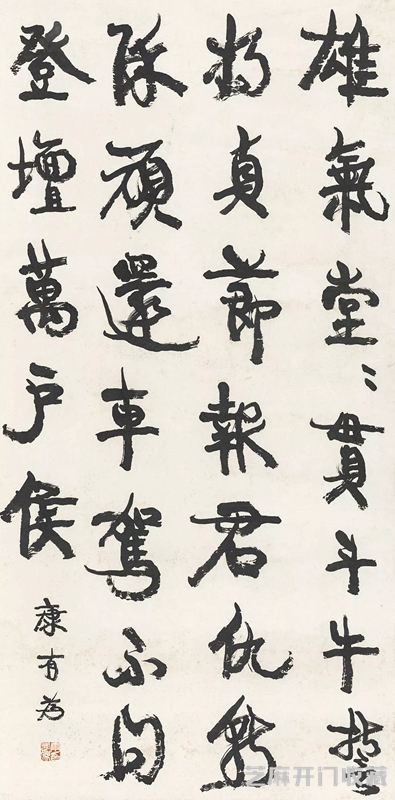 雄氣堂〻貫斗牛誓
將真節報君仇斬
除頑還車駕不問
登壇萬戶侯
康有為
芝麻开门收藏